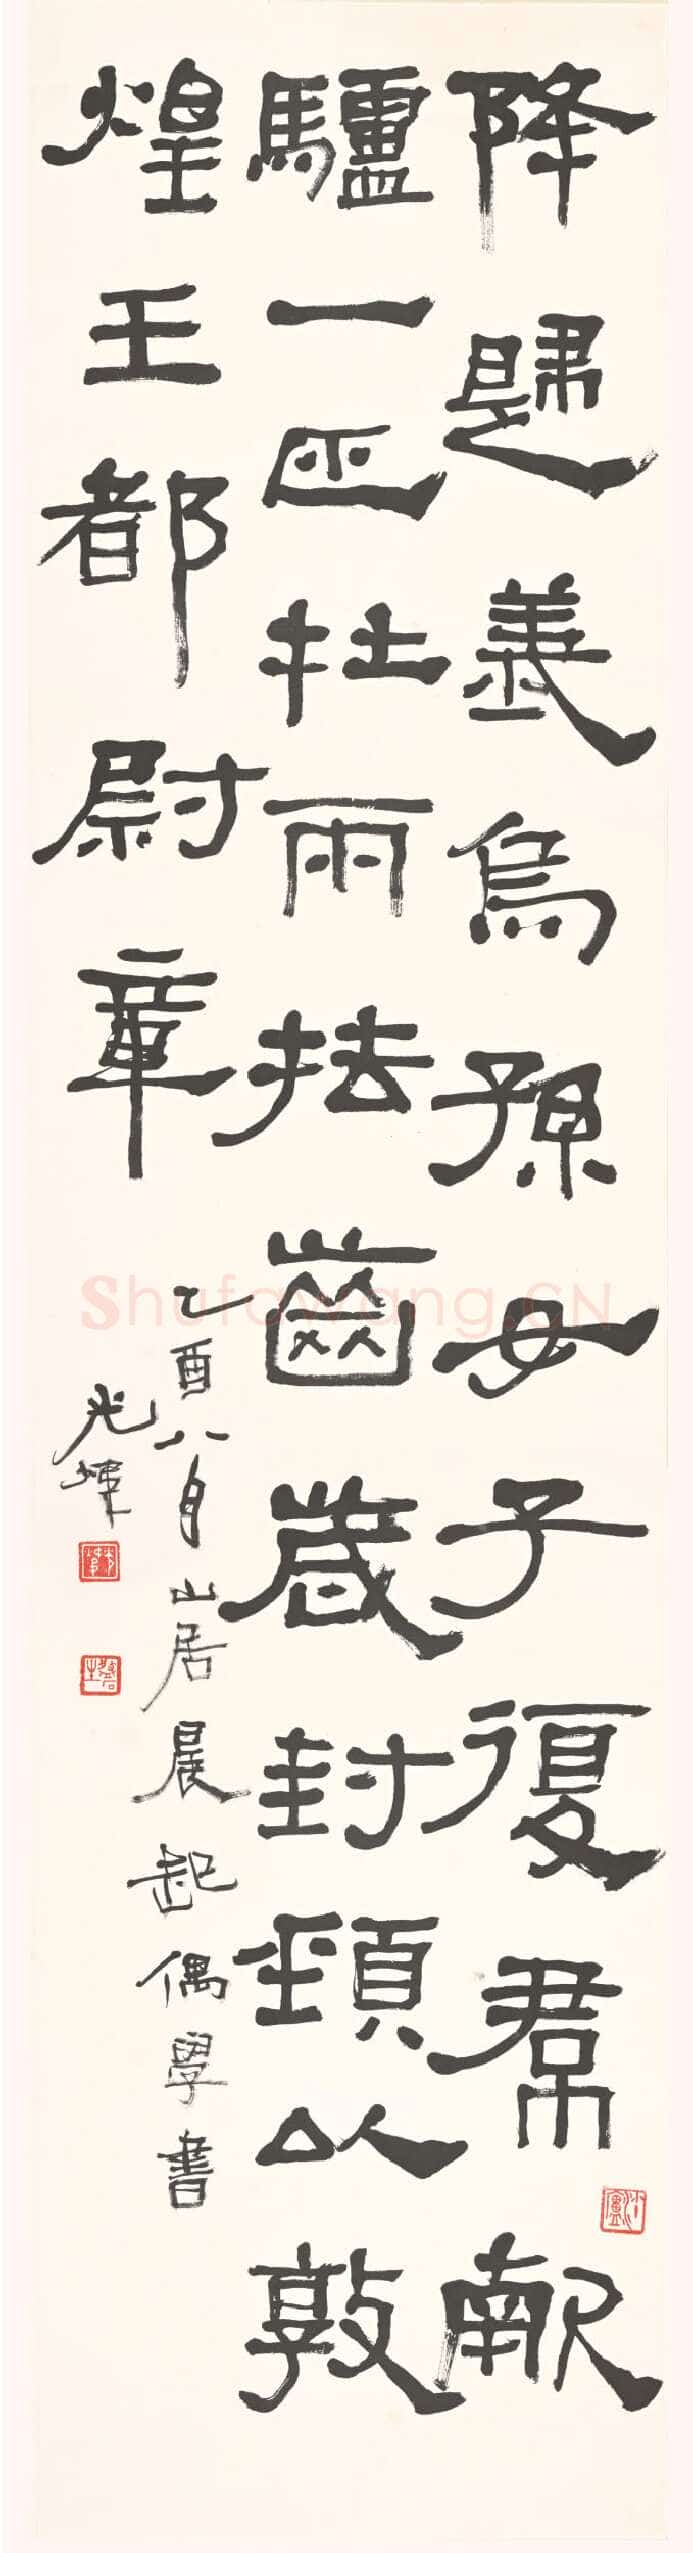 降歸義烏孫女子復帬献
驢一匹牡兩抾齒歲封頸以敦
煌王都尉章
乙酉八月山居晨起偶學書
光煒
Shufawang.CN